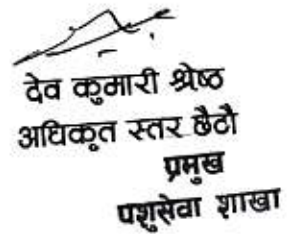 देव कुमारी श्रेष्ठ
अधिकृत स्तर छैटौ
प्रमुख
पशुसेवा शाखा